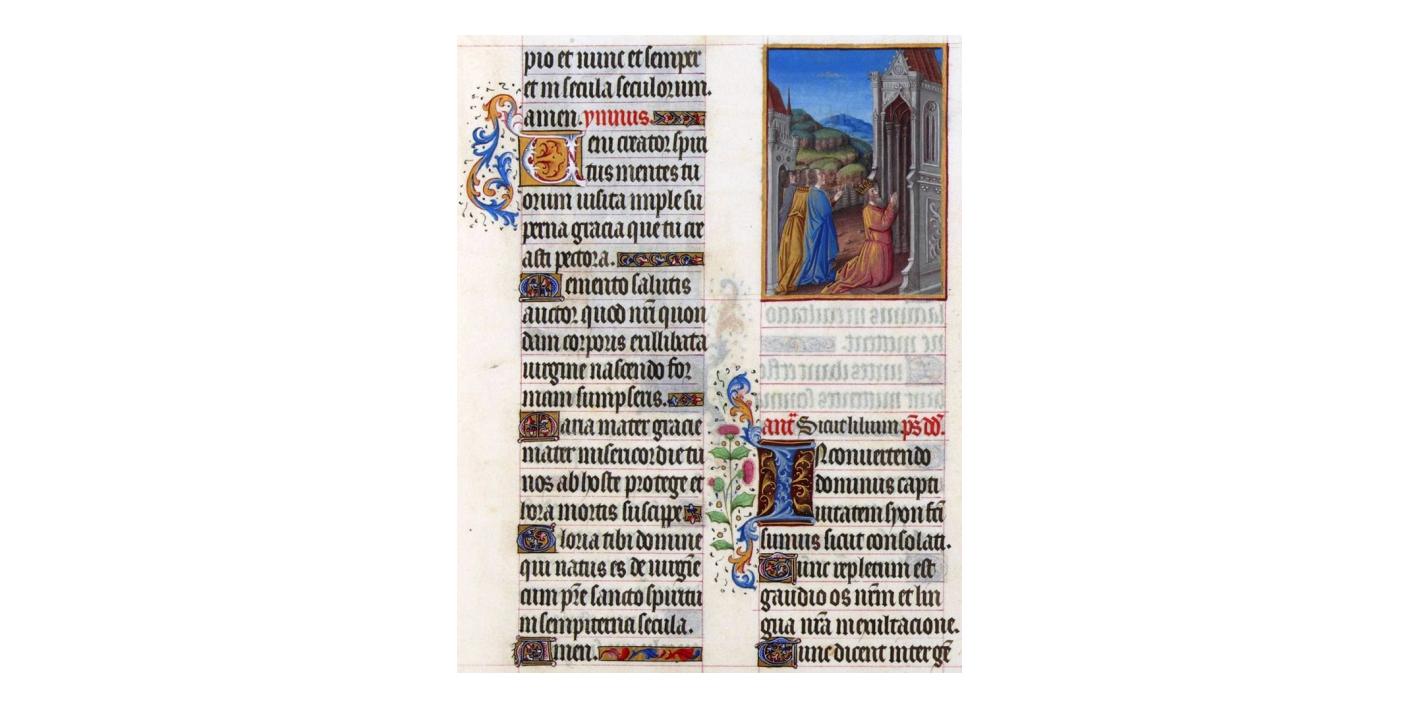 pio et nunc et semper
et in secula seculorum.
amen. ymnus.
Ueni creator spiri
tus mentes tu
orum uisita imple su
perna gracia que tu cre
asti pectora.
Memento salutis
auctor quod nr̄i quon
dam corporis ex illibata
uirgine nascendo for
mam sumpseris.
Maria mater gracie
mater misericordie tu
nos ab hoste protege et
hora mortis suscipe
Gloria tibi domine
qui natus es de uirgīe
cum pr̄e sancto spiritu
in sempiterna secula.
Amen.
ant̄ Sicut lilium p̄s dd̄.
IN conuertendo
dominus capti
uitatem syon fcī
sumus sicut consolati.
Tunc repletum est
gaudio os nr̄m et lin
gua nr̄a in exultacione.
Tunc dicent inter gē